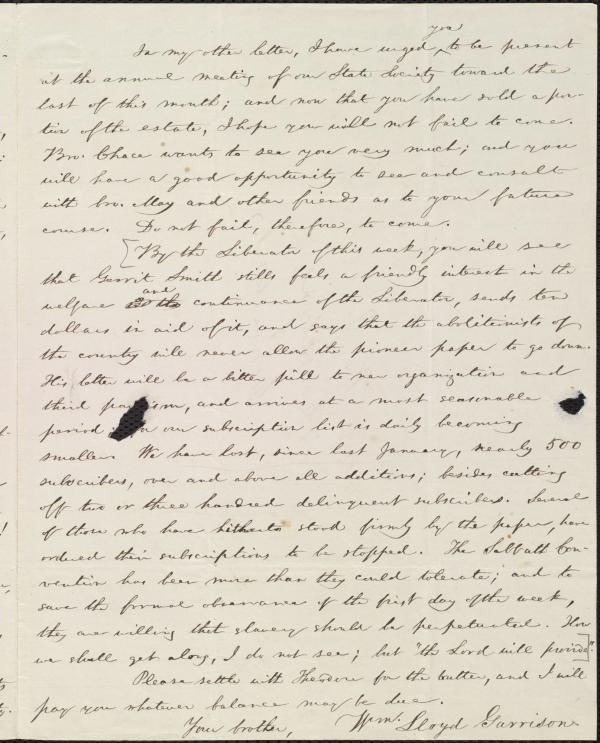 you
In my other letter, I have urged to be present
at the annual meeting of our State Society toward the
last of this month; and now that you have sold a por-
tion of the estate, I hope you will not fail to come.
Bro. Chace wants to see you very much; and you
will have a good opportunity to see and consult
with bro. May and other friends as to your future
course. Do not fail, therefore, to come.
[By the Liberator of this week, you will see
that Gerrit Smith stills feels a friendly interest in the
and
welfare continuance of the Liberator, sends ten
dollars in aid of it, and says that the abolitionists of
the country will never allow the pioneer paper to go down.
His letter will be a bitter pill to new organization and
third ism, and arrives at a most seasonable
period our subscription list is daily becoming
smaller. We have lost, since last January, nearly 500
subscribers, over and above all additions; besides cutting
off two or three hundred delinquent subscribers. Several
of those who have hitherto stood firmly by the paper, have
ordered their subscriptions to be stopped. The Sabbath Con-
vention has been more than they could tolerate; and to
save the formal observance of the first day of the week,
they are willing that slavery should be perpetuated. How
we shall get along, I do not see; but "the Lord will provide]."
Please settle with Theodore for the butter, and I will
pay you whatever balance may be due.
Your brother, Wm. Lloyd Garrison.